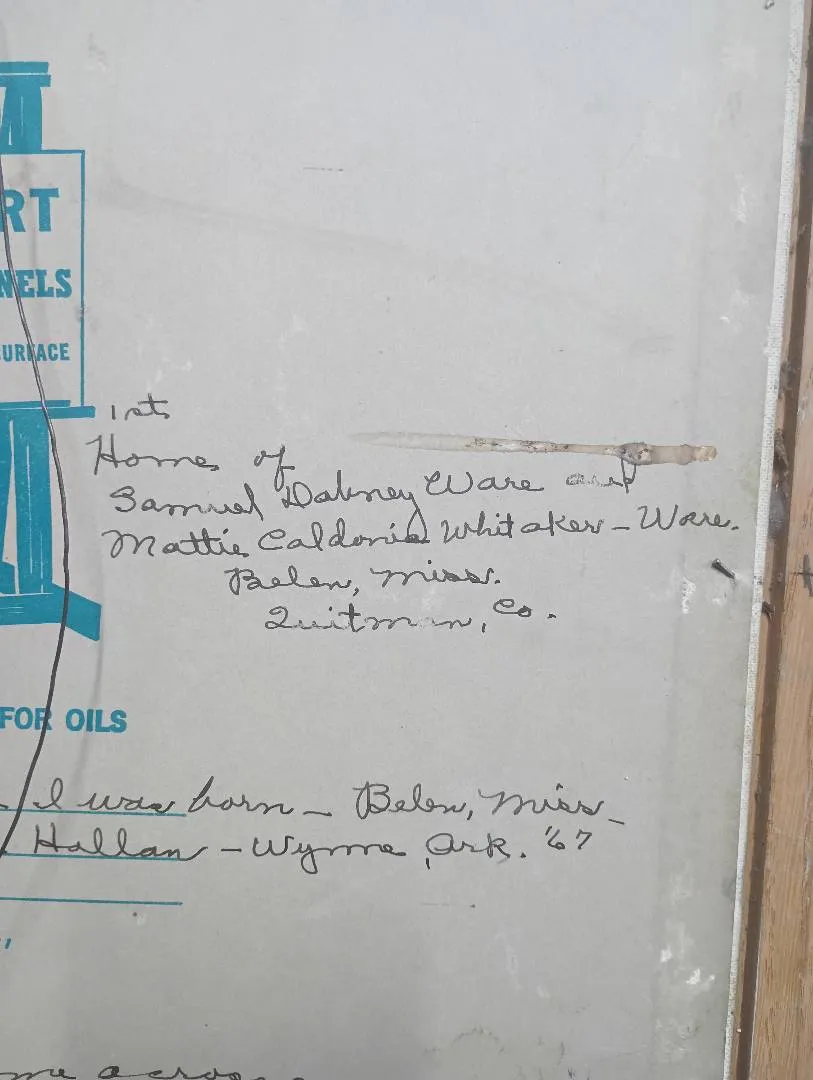 RT
NELS
SURFACE
1st
Home of
Samuel Dabney Ware and
Mattie Caldonia Whitaker - Ware.
Belen, Miss.
Quitman, Co.
FOR OILS
I was born - Belen, Miss -
Hallan - Wynne, Ark. '67
me across